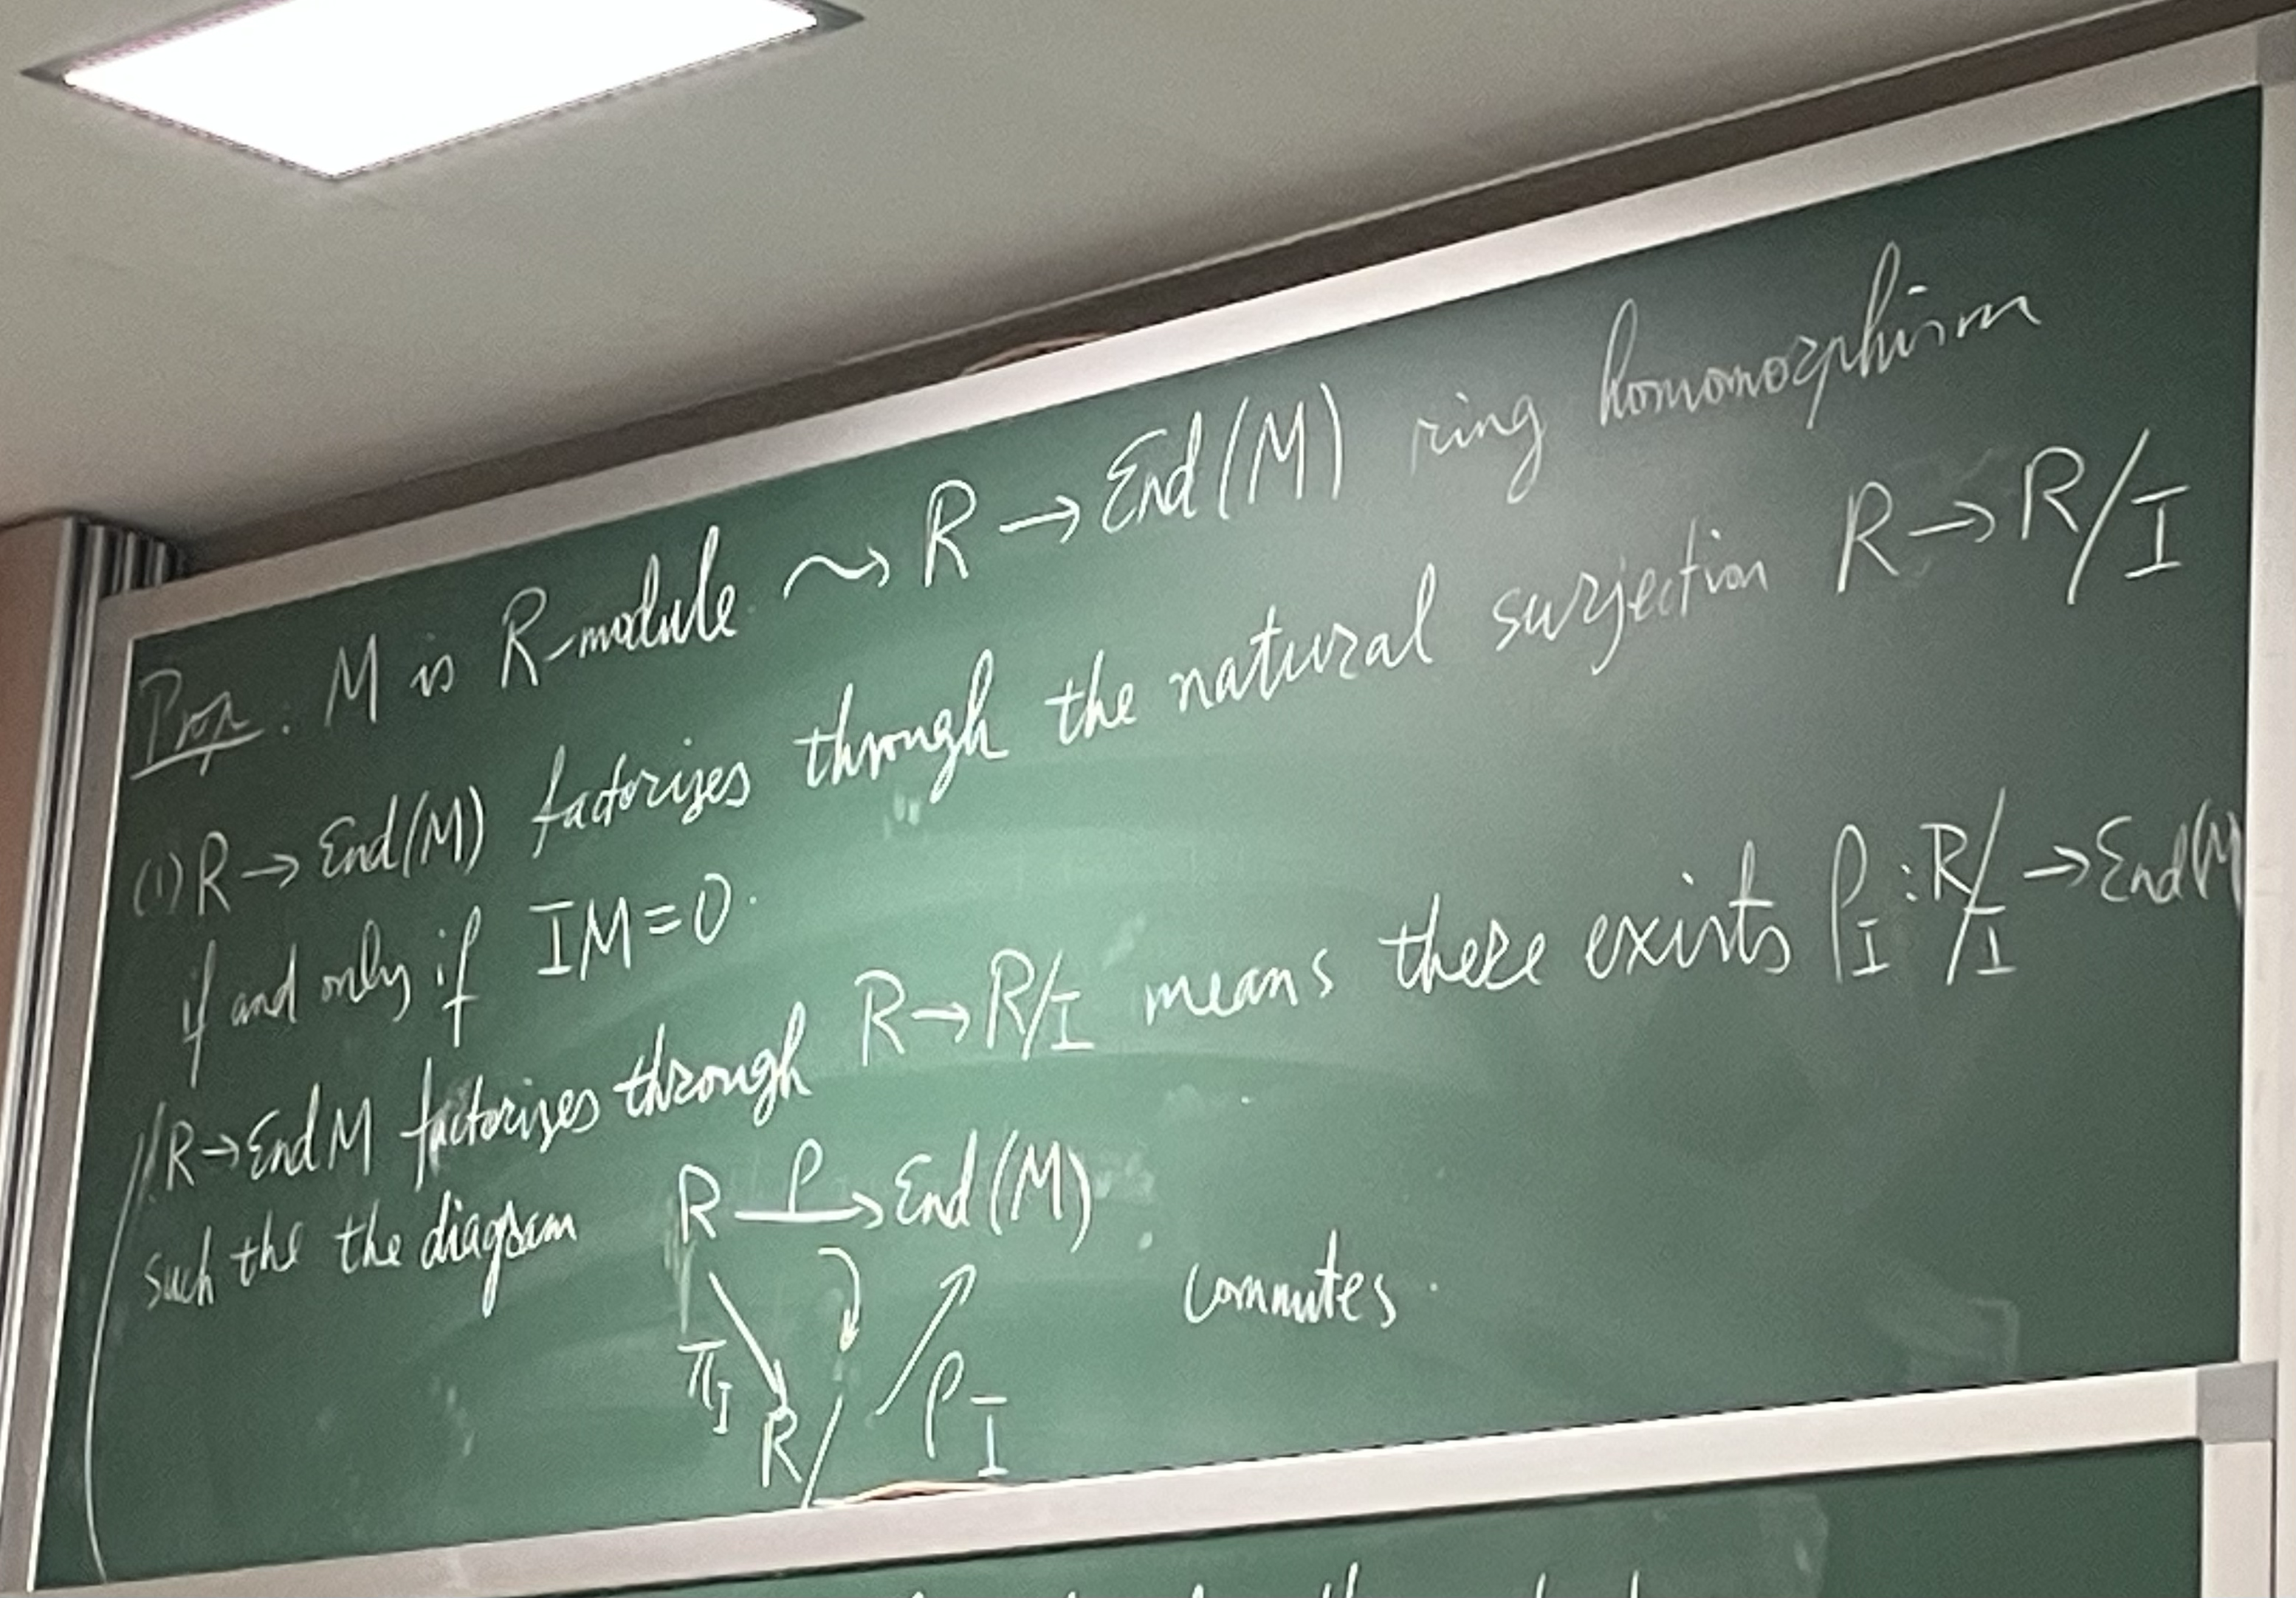 Prop. M is R-module ⇝ R → End(M) ring homomorphism
(1) R → End(M) factorizes through the natural surjection R → R/I
if and only if IM=0.
R → End M factorizes through R → R/I means there exists ρ_I : R/I → End(M
such the the diagram R —ρ→ End(M)
commutes.
π_I
ρ_I
R/